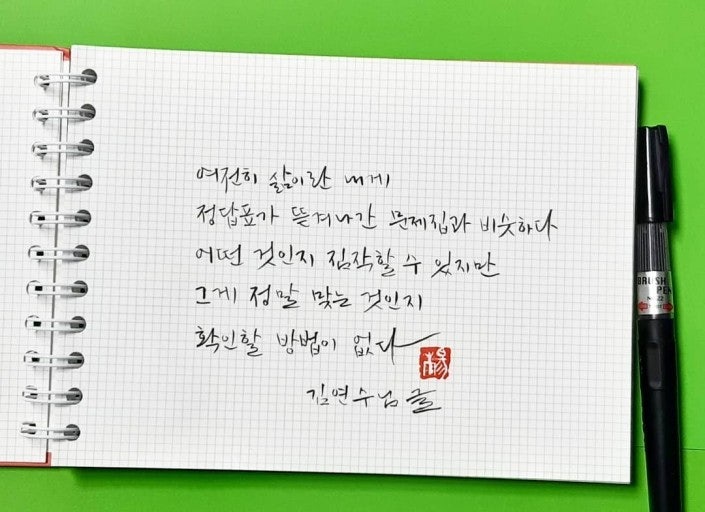 여전히 삶이란 내게
정답표가 뜯겨나간 문제집과 비슷하다
어떤 것인지 짐작할 수 있지만
그게 정말 맞는 것인지
확인할 방법이 없다
楊
김연수님 글
BRUSH
PEN
No.22